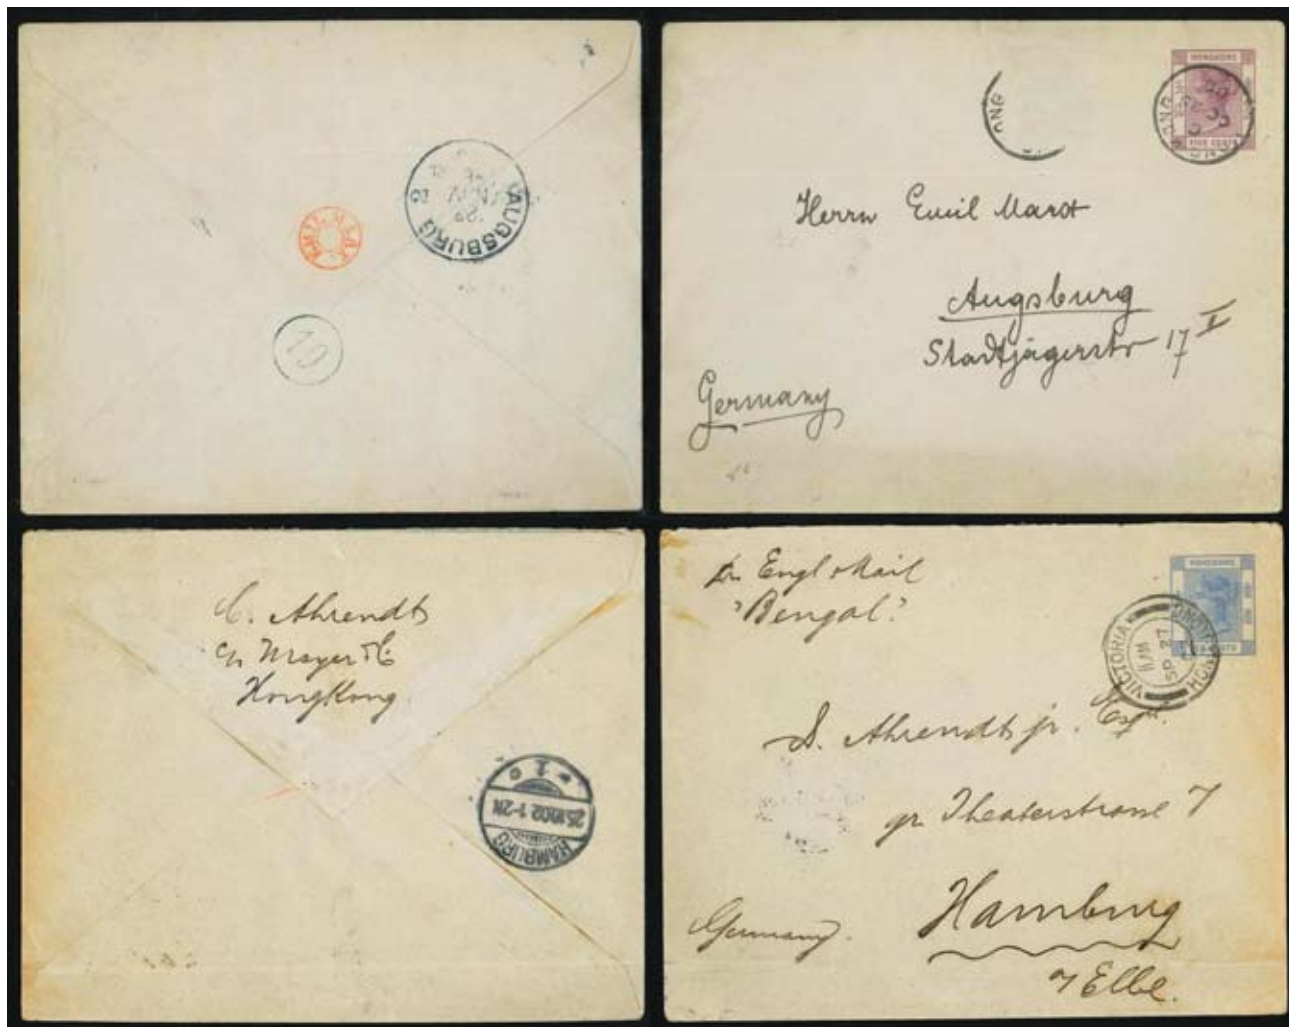 AUGSBURG 2
29
NOV
10
HONGKONG
FIVE CENTS
Herrn Emil Marx
Augsburg
Stadtjägerstr 17 II
Germany
C. Ahrendt
c/o Meyer & Co
HongKong
HAMBURG
25.10.02.1-2N
1
Engl. Mail
"Bengal"
HONGKONG
TEN CENTS
VICTORIA
HONGKONG
11 AM
SP 27
S. Ahrendt jr. Esqr.
gr. Theaterstrasse 7
Hamburg
Germany.
Elbe.